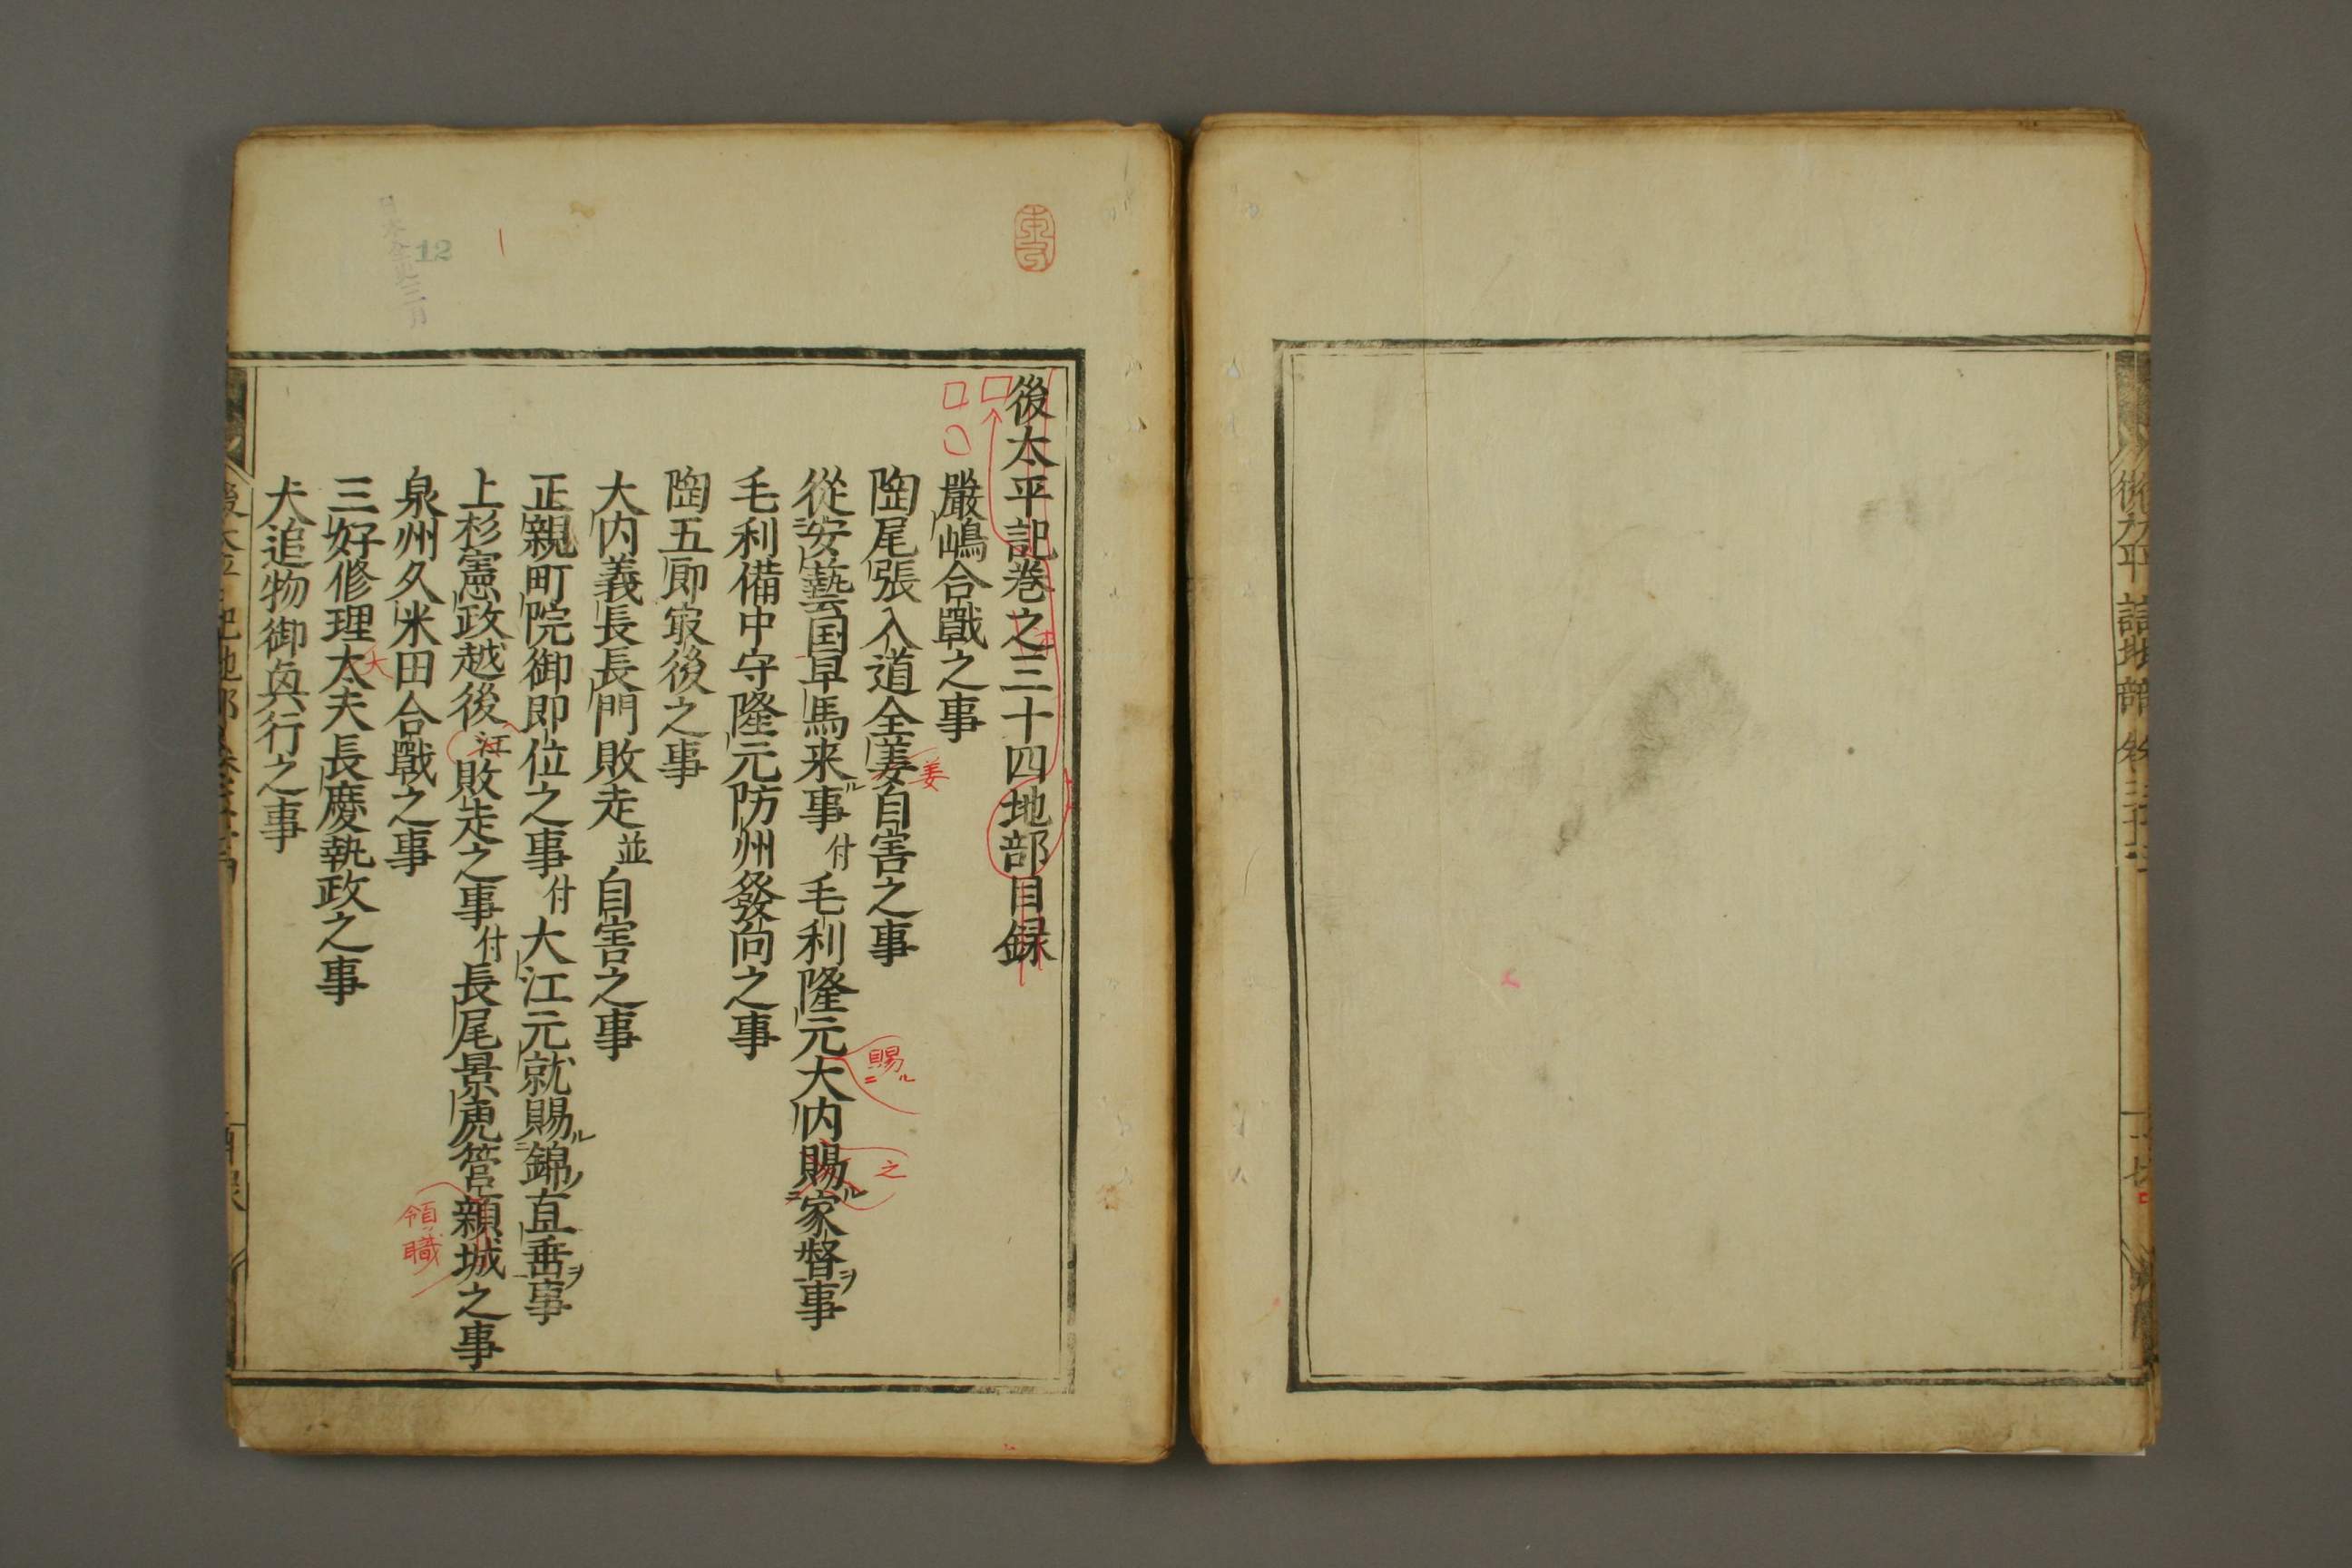 後太平記巻之三十四地部目録
嚴嶋合戰之事
陶尾張入道全姜自害之事
姜
從安藝国早馬来ル事付毛利隆元大内賜ニル家督ヲ事
賜ニル
之
毛利備中守隆元防州發向之事
陶五郎最後之事
大内義長長門敗走並自害之事
正親町院御即位之事付大江元就賜ニル錦ノ直垂ヲ事
上杉憲政越後江敗走之事付長尾景虎管領城之事
領職
泉州久米田合戰之事
三好修理太夫長慶執政之事
大
犬追物御興行之事
12